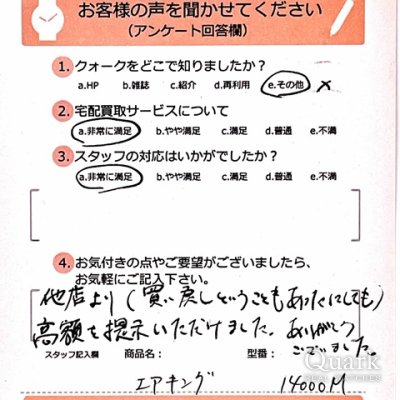 お客様の声を聞かせてください
(アンケート回答欄)
1. クォークをどこで知りましたか?
a.HP b.雑誌 c.紹介 d.再利用 e.その他
2. 宅配買取サービスについて
a.非常に満足 b.やや満足 c.満足 d.普通 e.不満
3. スタッフの対応はいかがでしたか?
a.非常に満足 b.やや満足 c.満足 d.普通 e.不満
4. お気付きの点やご要望がございましたら、
お気軽にご記入下さい。
他店より(買い戻しということもあったにしても)
高額を提示いただけました。ありがとう
ございました。
スタッフ記入欄 商品名: 型番:
エアキング 14000M
Quark